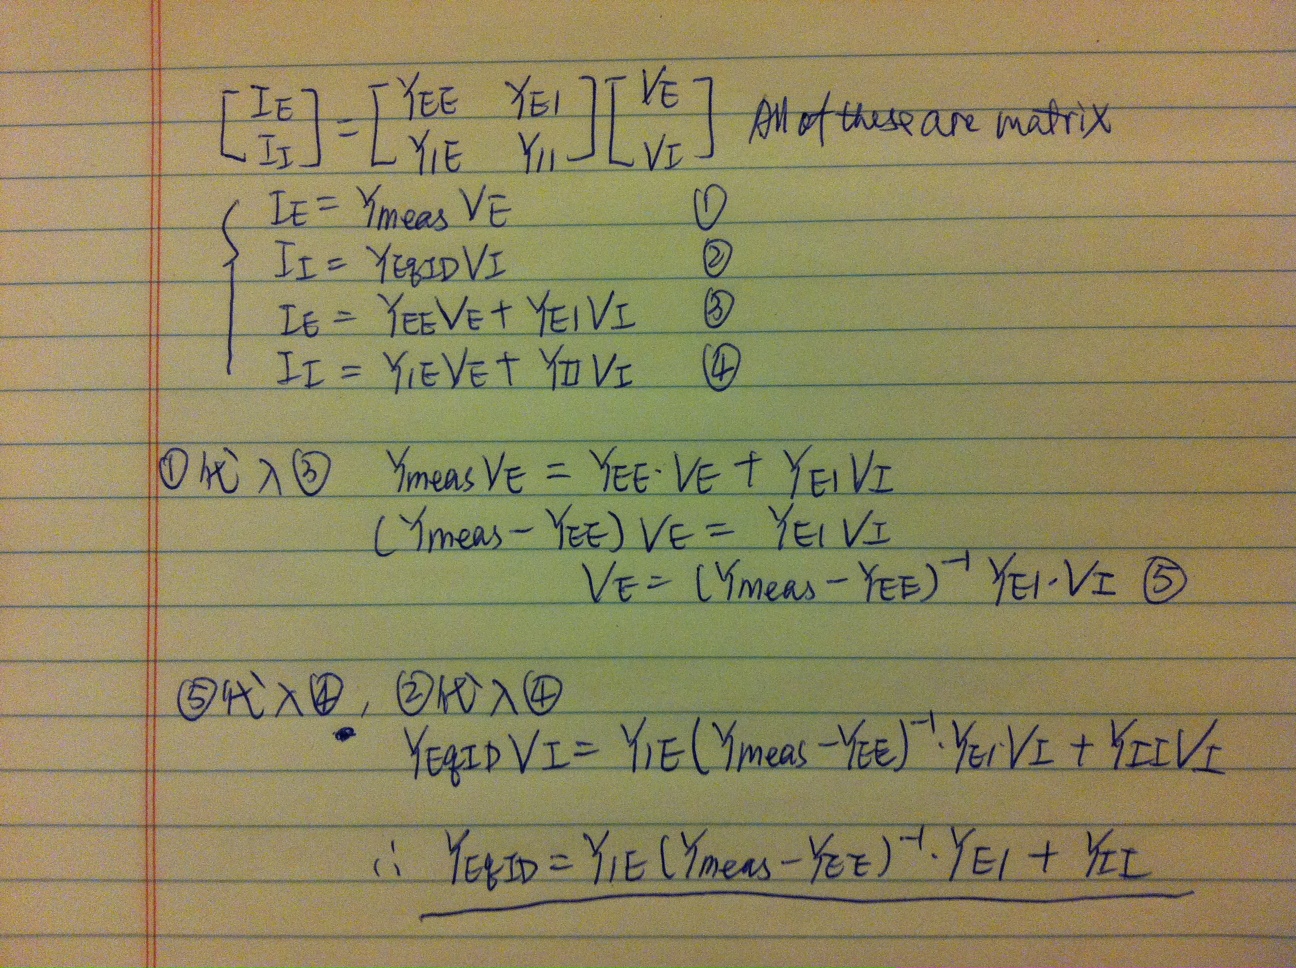 [I_E; I_I] = [Y_EE Y_EI; Y_IE Y_II] [V_E; V_I] All of these are matrix
I_E = Y_meas V_E ①
I_I = Y_EqID V_I ②
I_E = Y_EE V_E + Y_EI V_I ③
I_I = Y_IE V_E + Y_II V_I ④
①代入③ Y_meas V_E = Y_EE · V_E + Y_EI V_I
(Y_meas − Y_EE) V_E = Y_EI V_I
V_E = (Y_meas − Y_EE)^-1 Y_EI · V_I ⑤
⑤代入④, ②代入④
Y_EqID V_I = Y_IE (Y_meas − Y_EE)^-1 · Y_EI · V_I + Y_II V_I
∴ Y_EqID = Y_IE (Y_meas − Y_EE)^-1 · Y_EI + Y_II